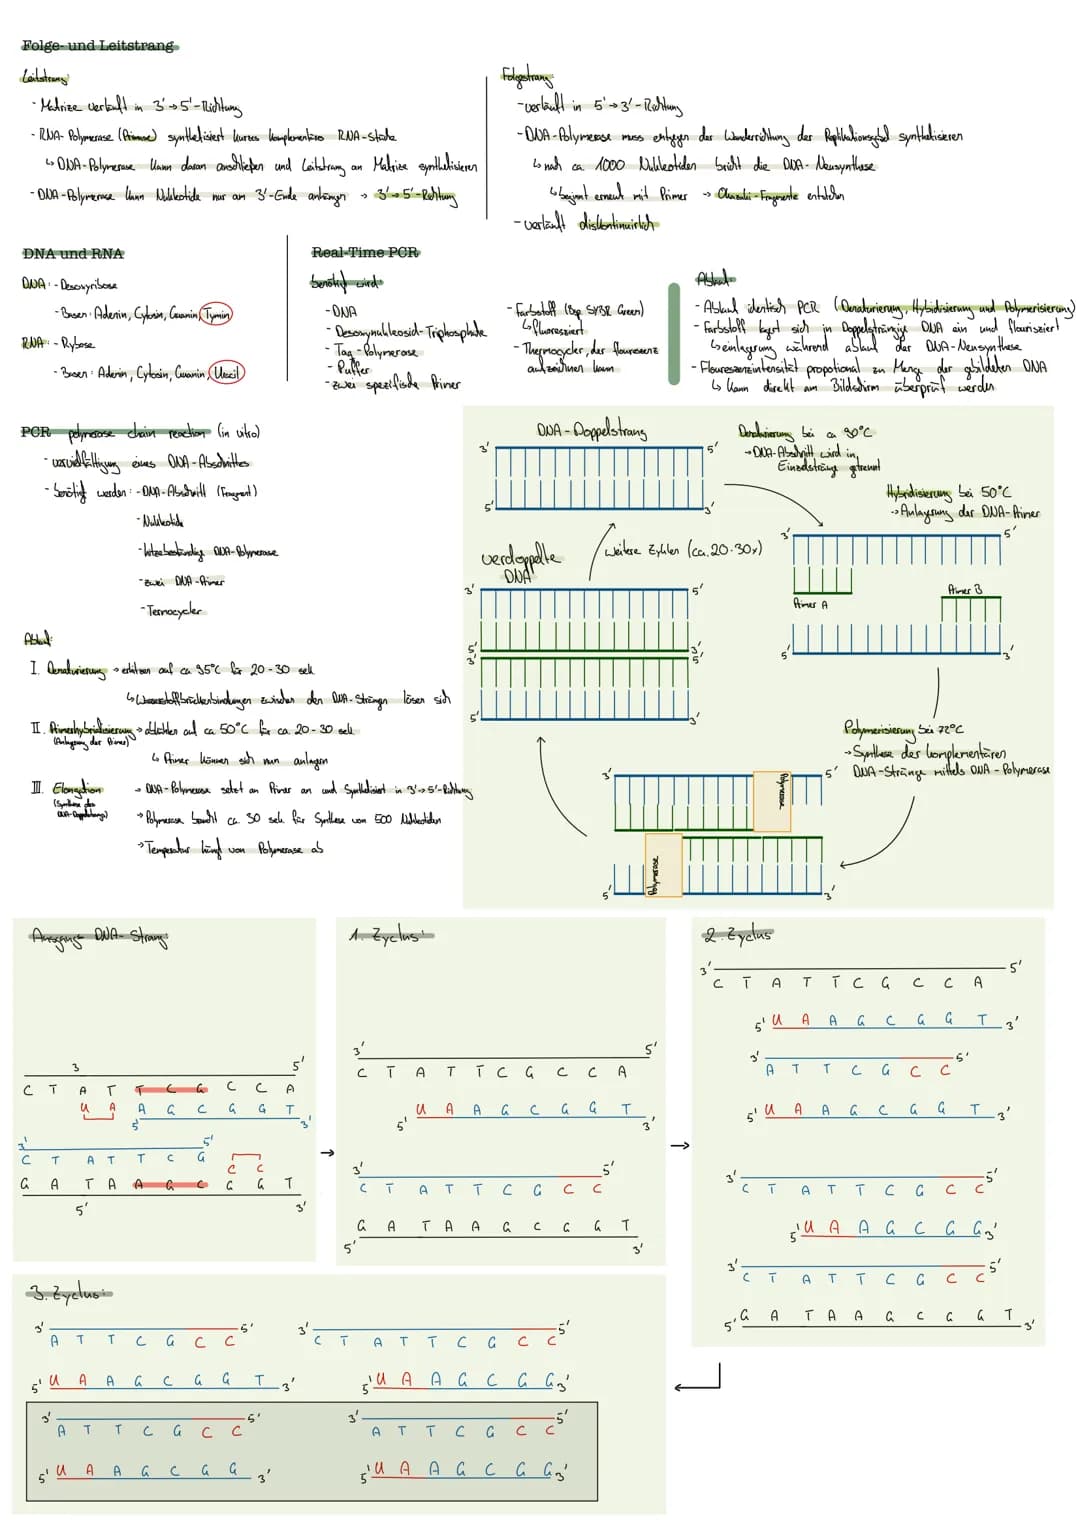 Folge- und Leitstrang
Leitstrang:
- Matrize verläuft in 3'→5'-Richtung
- RNA-Polymerase (Primase) synthetisiert kurzes komplementäres RNA-Stück
↳ DNA-Polymerase kann daran anschließen und Leitstrang an Matrize synthetisieren
- DNA-Polymerase kann Nukleotide nur am 3'-Ende anhängen → 3'→5'-Richtung
Folgestrang:
- verläuft in 5'→3'-Richtung
- DNA-Polymerase muss entgegen der Wanderrichtung der Replikationsgabel synthetisieren
↳ nach ca. 1000 Nukleotiden bricht die DNA-Neusynthese
↳ beginnt erneut mit Primer → Okazaki-Fragmente entstehen
- verläuft diskontinuirlich
DNA und RNA
DNA: - Desoxyribose
- Basen: Adenin, Cytosin, Guanin, Tymin
RNA: - Rybose
- Basen: Adenin, Cytosin, Guanin, Uracil
Real-Time PCR
benötigt wird:
- DNA
- Desoxynukleosid-Triphosphate
- Taq-Polymerase
- Puffer
- zwei spezifische Primer
- Farbstoff (Bsp. SYBR Green)
↳ fluoresziert
- Thermocycler, der flouresenz
aufzeichnen kann
Ablauf:
- Ablauf identisch PCR (Denaturierung, Hybidisierung und Polymerisierung)
- Farbstoff lagert sich in Doppelsträngige DNA ein und flourisziert
↳ einlagerung während ablauf der DNA-Neusynthese
- Floureszenzintensität propotional zu Menge der gebildeten DNA
↳ kann direkt am Bildschirm überprüft werden
PCR polymerase chain reaction (in vitro)
- vervielfältigung eines DNA-Abschnittes
- benötigt werden: - DNA-Abschnitt (Fragment)
- Nukleotide
- hitzebeständige DNA-Polymerase
- zwei DNA-Primer
- Termocycler
Ablauf:
I. Denaturierung → erhitzen auf ca 95°C für 20-30 sek
↳ Wasserstoffbrückenbindungen zwischen den DNA-Strängen lösen sich
II. Primerhybridisierung → abkühlen auf ca. 50°C für ca. 20-30 sek
(Anlagerung der Primer)
↳ Primer können sich nun anlagern
III. Elongation → DNA-Polymerase setzt an Primer an und Synthetisiert in 3'→5'-Richtung
(Synthese des
DNA-Doppelstrangs)
→ Polymerase braucht ca. 30 sek für Synthese von 500 Nukleotiden
→ Temperatur hängt von Polymerase ab
DNA-Doppelstrang
3' 5'
5' 3'
Denaturierung bei ca 90°C
→ DNA-Abschnitt wird in
Einzelstränge getrennt
Hybridisierung bei 50°C
→ Anlagerung der DNA-Primer
3' 5'
Primer A
Primer B
5' 3'
weitere Zyklen (ca. 20-30x)
verdoppelte
DNA
3' 5'
5' 3'
3' 5'
5' 3'
Polymerisierung bei 72°C
→ Synthese der komplementären
DNA-Stränge mittels DNA-Polymerase
3' 5'
Polymerase
Polymerase
5' 3'
Ausgangs DNA-Strang:
3 5'
C T A T T C G C C A
U A A G C G G T
5' 3'
3' 5'
C T A T T C G
C C
G A T A A G C G G T
5' 3'
1. Zyclus:
3' 5'
C T A T T C G C C A
U A A G C G G T
5' 3'
3' 5'
C T A T T C G C C
G A T A A G C G G T
5' 3'
2. Zyclus
3' 5'
C T A T T C G C C A
5' U A A G C G G T 3'
3' 5'
A T T C G C C
5' U A A G C G G T 3'
3' 5'
C T A T T C G C C
5' U A A G C G G 3'
3' 5'
C T A T T C G C C
5' G A T A A G C G G T 3'
3. Zyclus:
3' 5'
A T T C G C C
5' U A A G C G G T 3'
3' 5'
C T A T T C G C C
5' U A A G C G G 3'
3' 5'
A T T C G C C
5' U A A G C G G 3'
3' 5'
A T T C G C C
5' U A A G C G G 3'